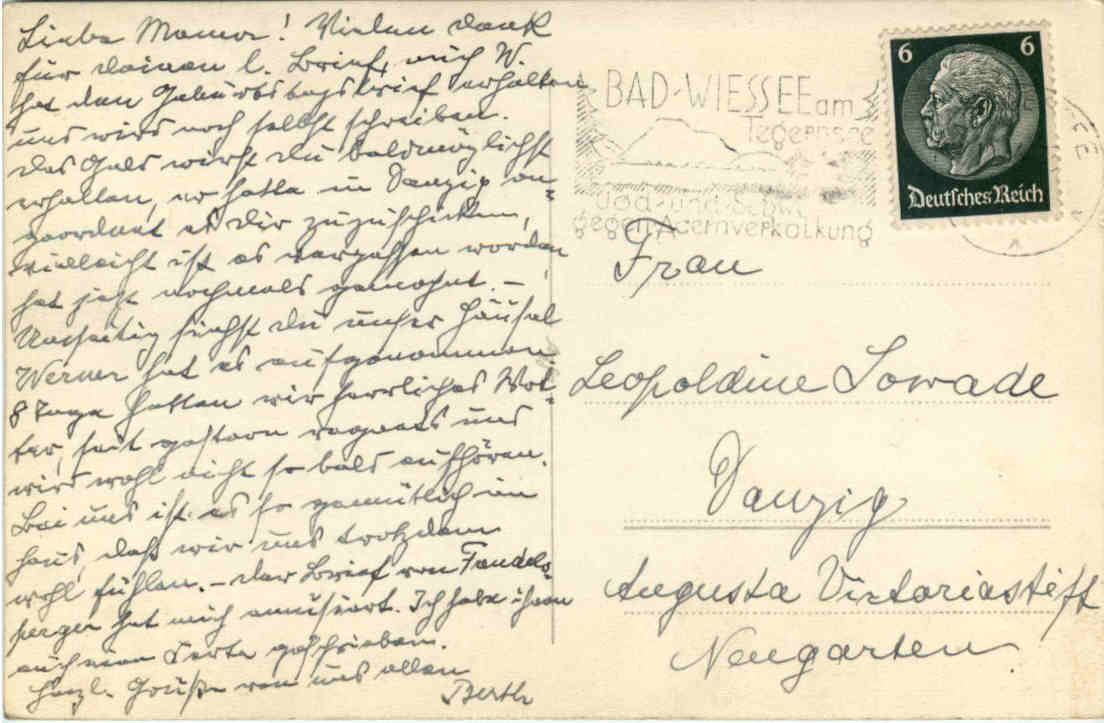 Liebe Mama! Vielen Dank
für deinen l. Brief, auch W.
hat den Geburtstagsbrief erhalten
und wird noch selbst schreiben.
Das Geld wirst du baldmöglichst
erhalten, er hatte in Danzig an-
geordnet es dir zuzuschicken,
vielleicht ist es vergessen worden
hat jetzt nochmals gemahnt. –
Umseitig siehst du unser Häusel
Werner hat es aufgenommen.
8 Tage hatten wir herrliches Wet-
ter, seit gestern regnets und
wird wohl nicht so bald aufhören.
Bei uns ist es so gemütlich im
Haus, daß wir uns trotzdem
wohl fühlen. – Der Brief von
hat mich amüsiert. Ich habe ihnen
auch eine Karte geschrieben.
Herzl. Grüße von uns allen
Berth
BAD-WIESSEE am
Tegernsee
Jod- und Schw.
gegen Adernverkalkung
6 6
Deutsches Reich
Frau
Leopoldine Sowade
Danzig
Augusta Victoriastift
Neugarten